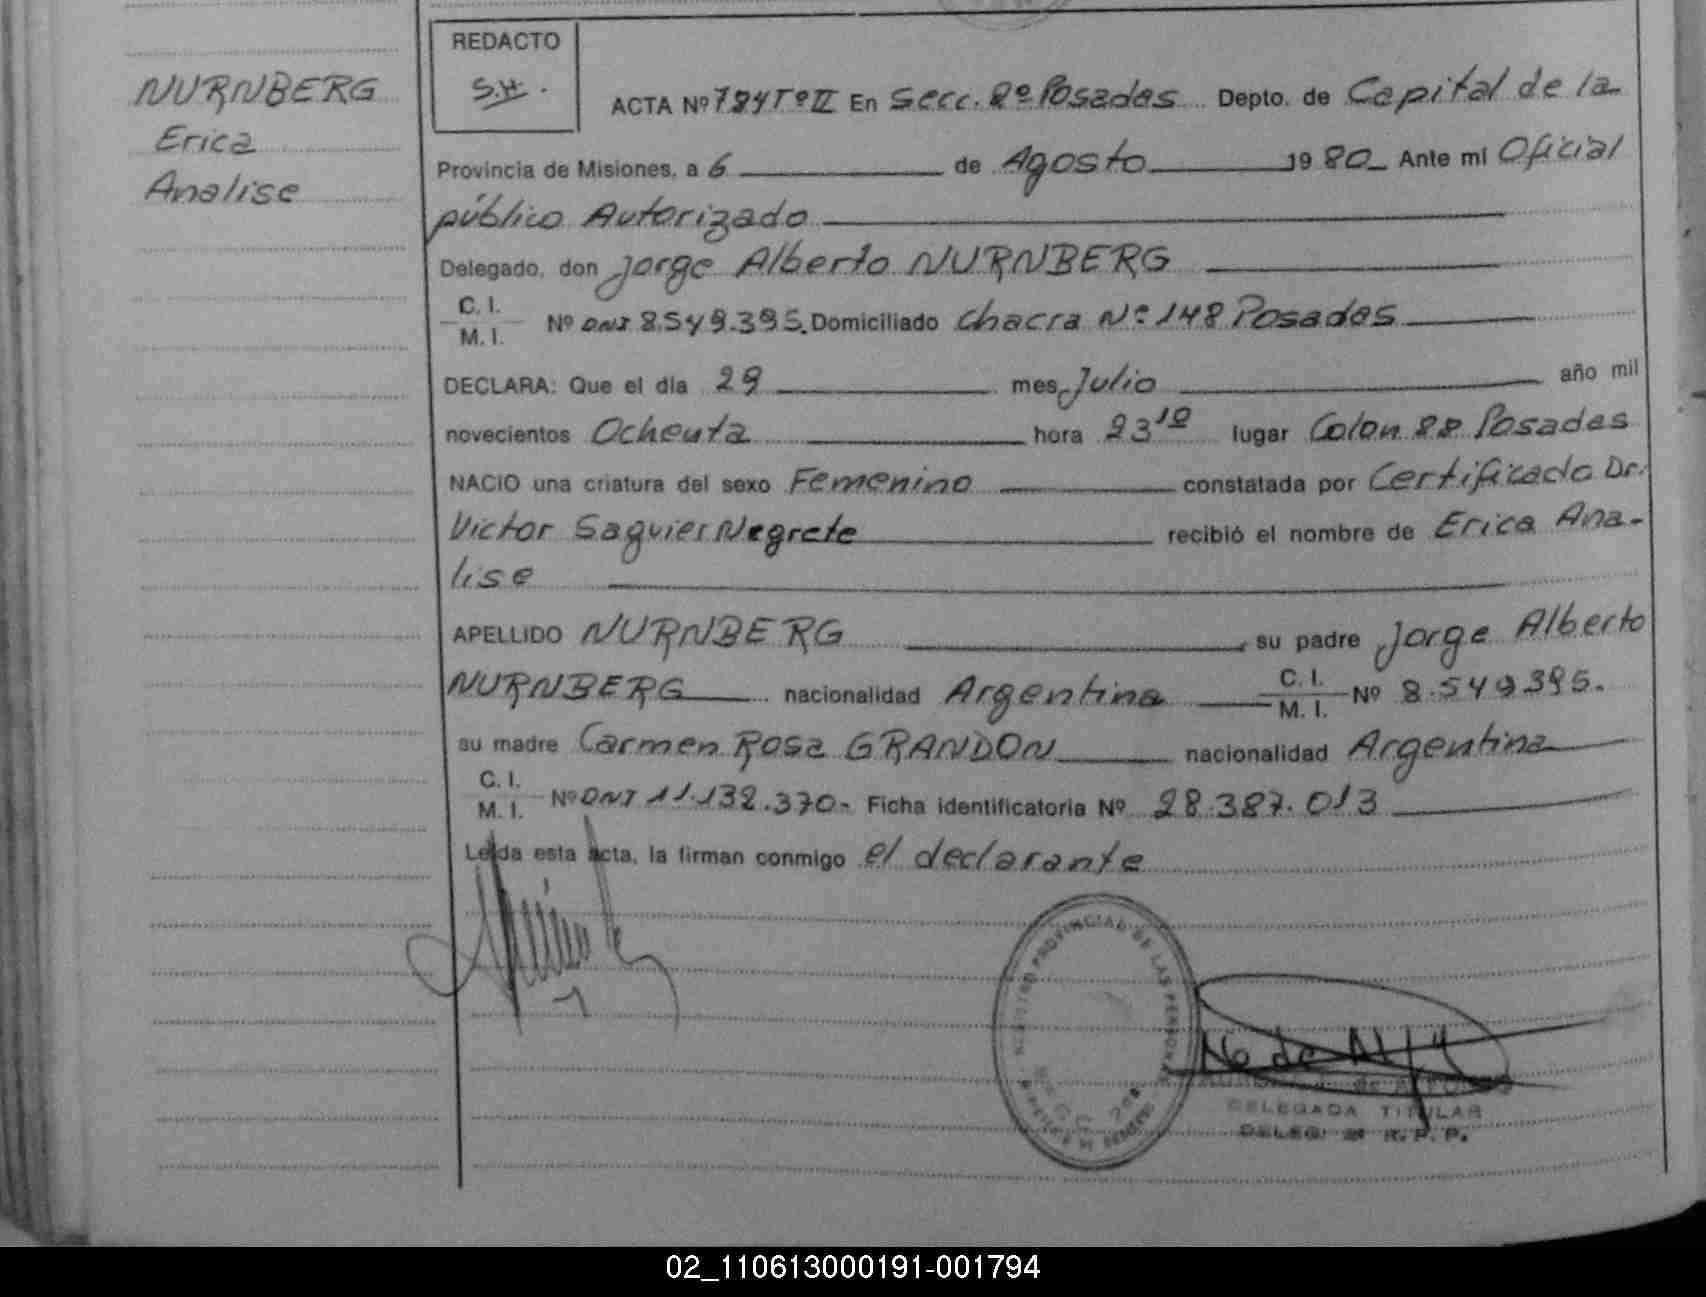 REDACTO
S.H.
NURNBERG
Erica
Analise
ACTA Nº 794 Tº II En Secc. 2º Posadas Depto. de Capital de la
Provincia de Misiones, a 6 de Agosto 1980 Ante mí Oficial
público Autorizado
Delegado, don Jorge Alberto NURNBERG
C. I.
M. I. Nº DNI 8.549.395. Domiciliado Chacra Nº 148 Posadas
DECLARA: Que el día 29 mes Julio año mil
novecientos Ochenta hora 23¹⁰ lugar Colon 22 Posadas
NACIO una criatura del sexo Femenino constatada por Certificado Dr.
Victor Saguier Negrete recibió el nombre de Erica Ana-
lise
APELLIDO NURNBERG, su padre Jorge Alberto
NURNBERG nacionalidad Argentina C. I. M. I. Nº 8.549.395.
su madre Carmen Rosa GRANDON nacionalidad Argentina
C. I.
M. I. Nº DNI 11.132.370- Ficha identificatoria Nº 28.387.013
Leída esta acta, la firman conmigo el declarante
REGISTRO PROVINCIAL DE LAS PERSONAS
DELEGADA TITULAR
DELEG. 2ª R. P. P.
02_110613000191-001794